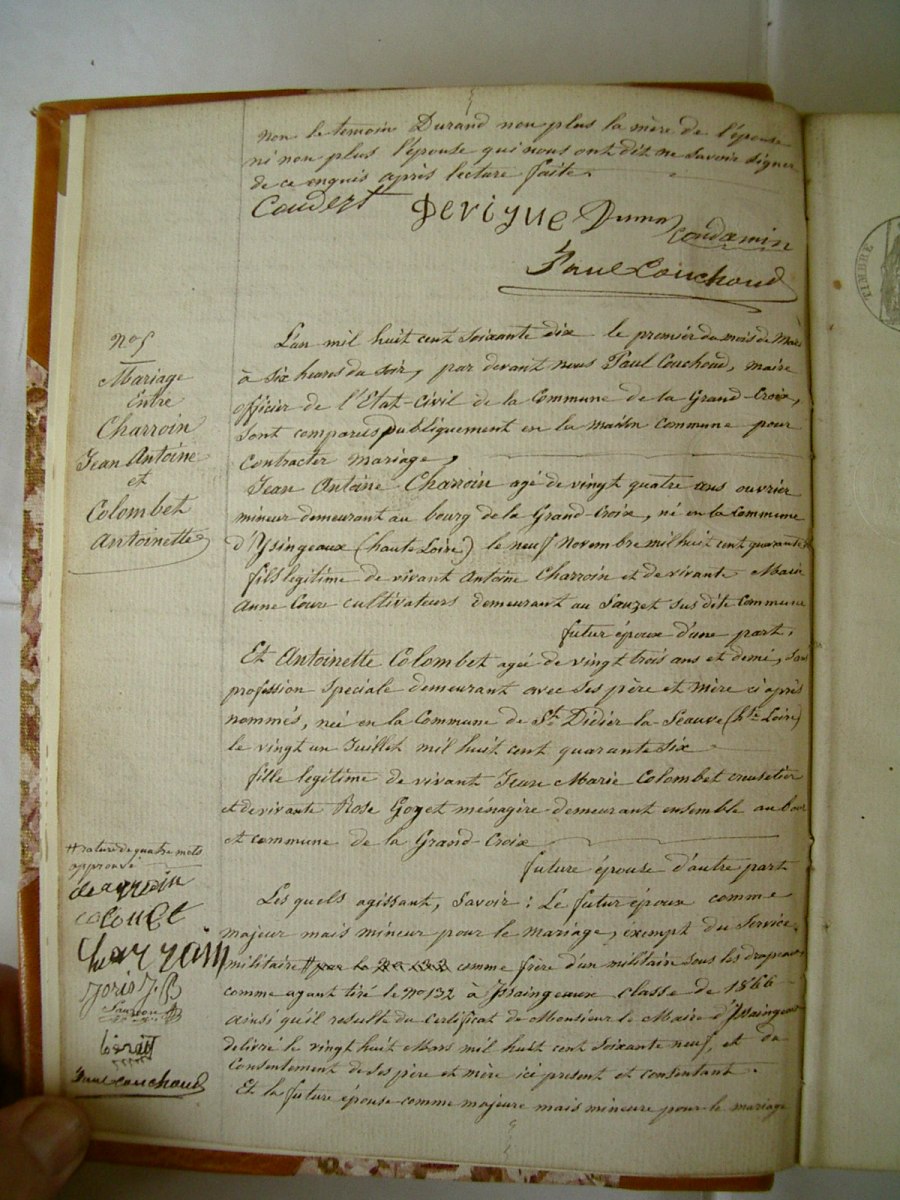 non le temoin Durand non plus la mère de l'épouse
ni non plus l'épouse qui nous ont dit ne savoir signer
de ce enquis après lecture faite.
Coudert Derigue Duma
Condamin
Paul Couchoud
TIMBRE
Mariage
Entre
Charroin
Jean Antoine
et
Colombet
Antoinette
L'an mil huit cent soixante dix le premier du mois de Mars
à six heures du soir, par devant nous Paul Couchoud, maire
officier de l'Etat-Civil de la Commune de la Grand-Croix,
sont comparus publiquement en la maison Commune pour
Contracter mariage,
Jean Antoine Charroin agé de vingt quatre ans ouvrier
mineur demeurant au bourg de la Grand-Croix, né en la Commune
d'Ysingeaux (haute Loire) le neuf Novembre mil huit cent quarante
fils legitime de vivant Antoine Charroin et de vivante Marie
Anne Coure cultivateurs demeurant au Sauzet sus dite Commune
futur époux d'une part,
Et Antoinette Colombet agée de vingt trois ans et demi, sans
profession speciale demeurant avec ses père et mère ci après
nommés, née en la Commune de St Didier-la-Seauve (hte Loire)
le vingt un Juillet mil huit cent quarante six
fille legitime de vivant Jean Marie Colombet creusetier
et de vivante Rose Goyet ménagère demeurant ensemble au bour
et commune de la Grand-Croix
future épouse d'autre part
Les quels agissant, savoir: Le futur époux comme
majeur mais mineur pour le mariage, éxempt du service
militaire comme frère d'un militaire sous les drapeaux
comme ayant tiré le No 132 à Issingeaux classe de 1866
ainsi qu'il resulte du certificat de Monsieur le Maire d'Issingeaux
delivré le vingt huit Mars mil huit cent soixante neuf, et du
Consentement de ses père et mère ici present et consentant.
Et la future épouse comme majeure mais mineure pour le mariage
# rature de quatre mots
approuvé
charroin
colombet
Charroin
Joris J B
Paul Couchoud